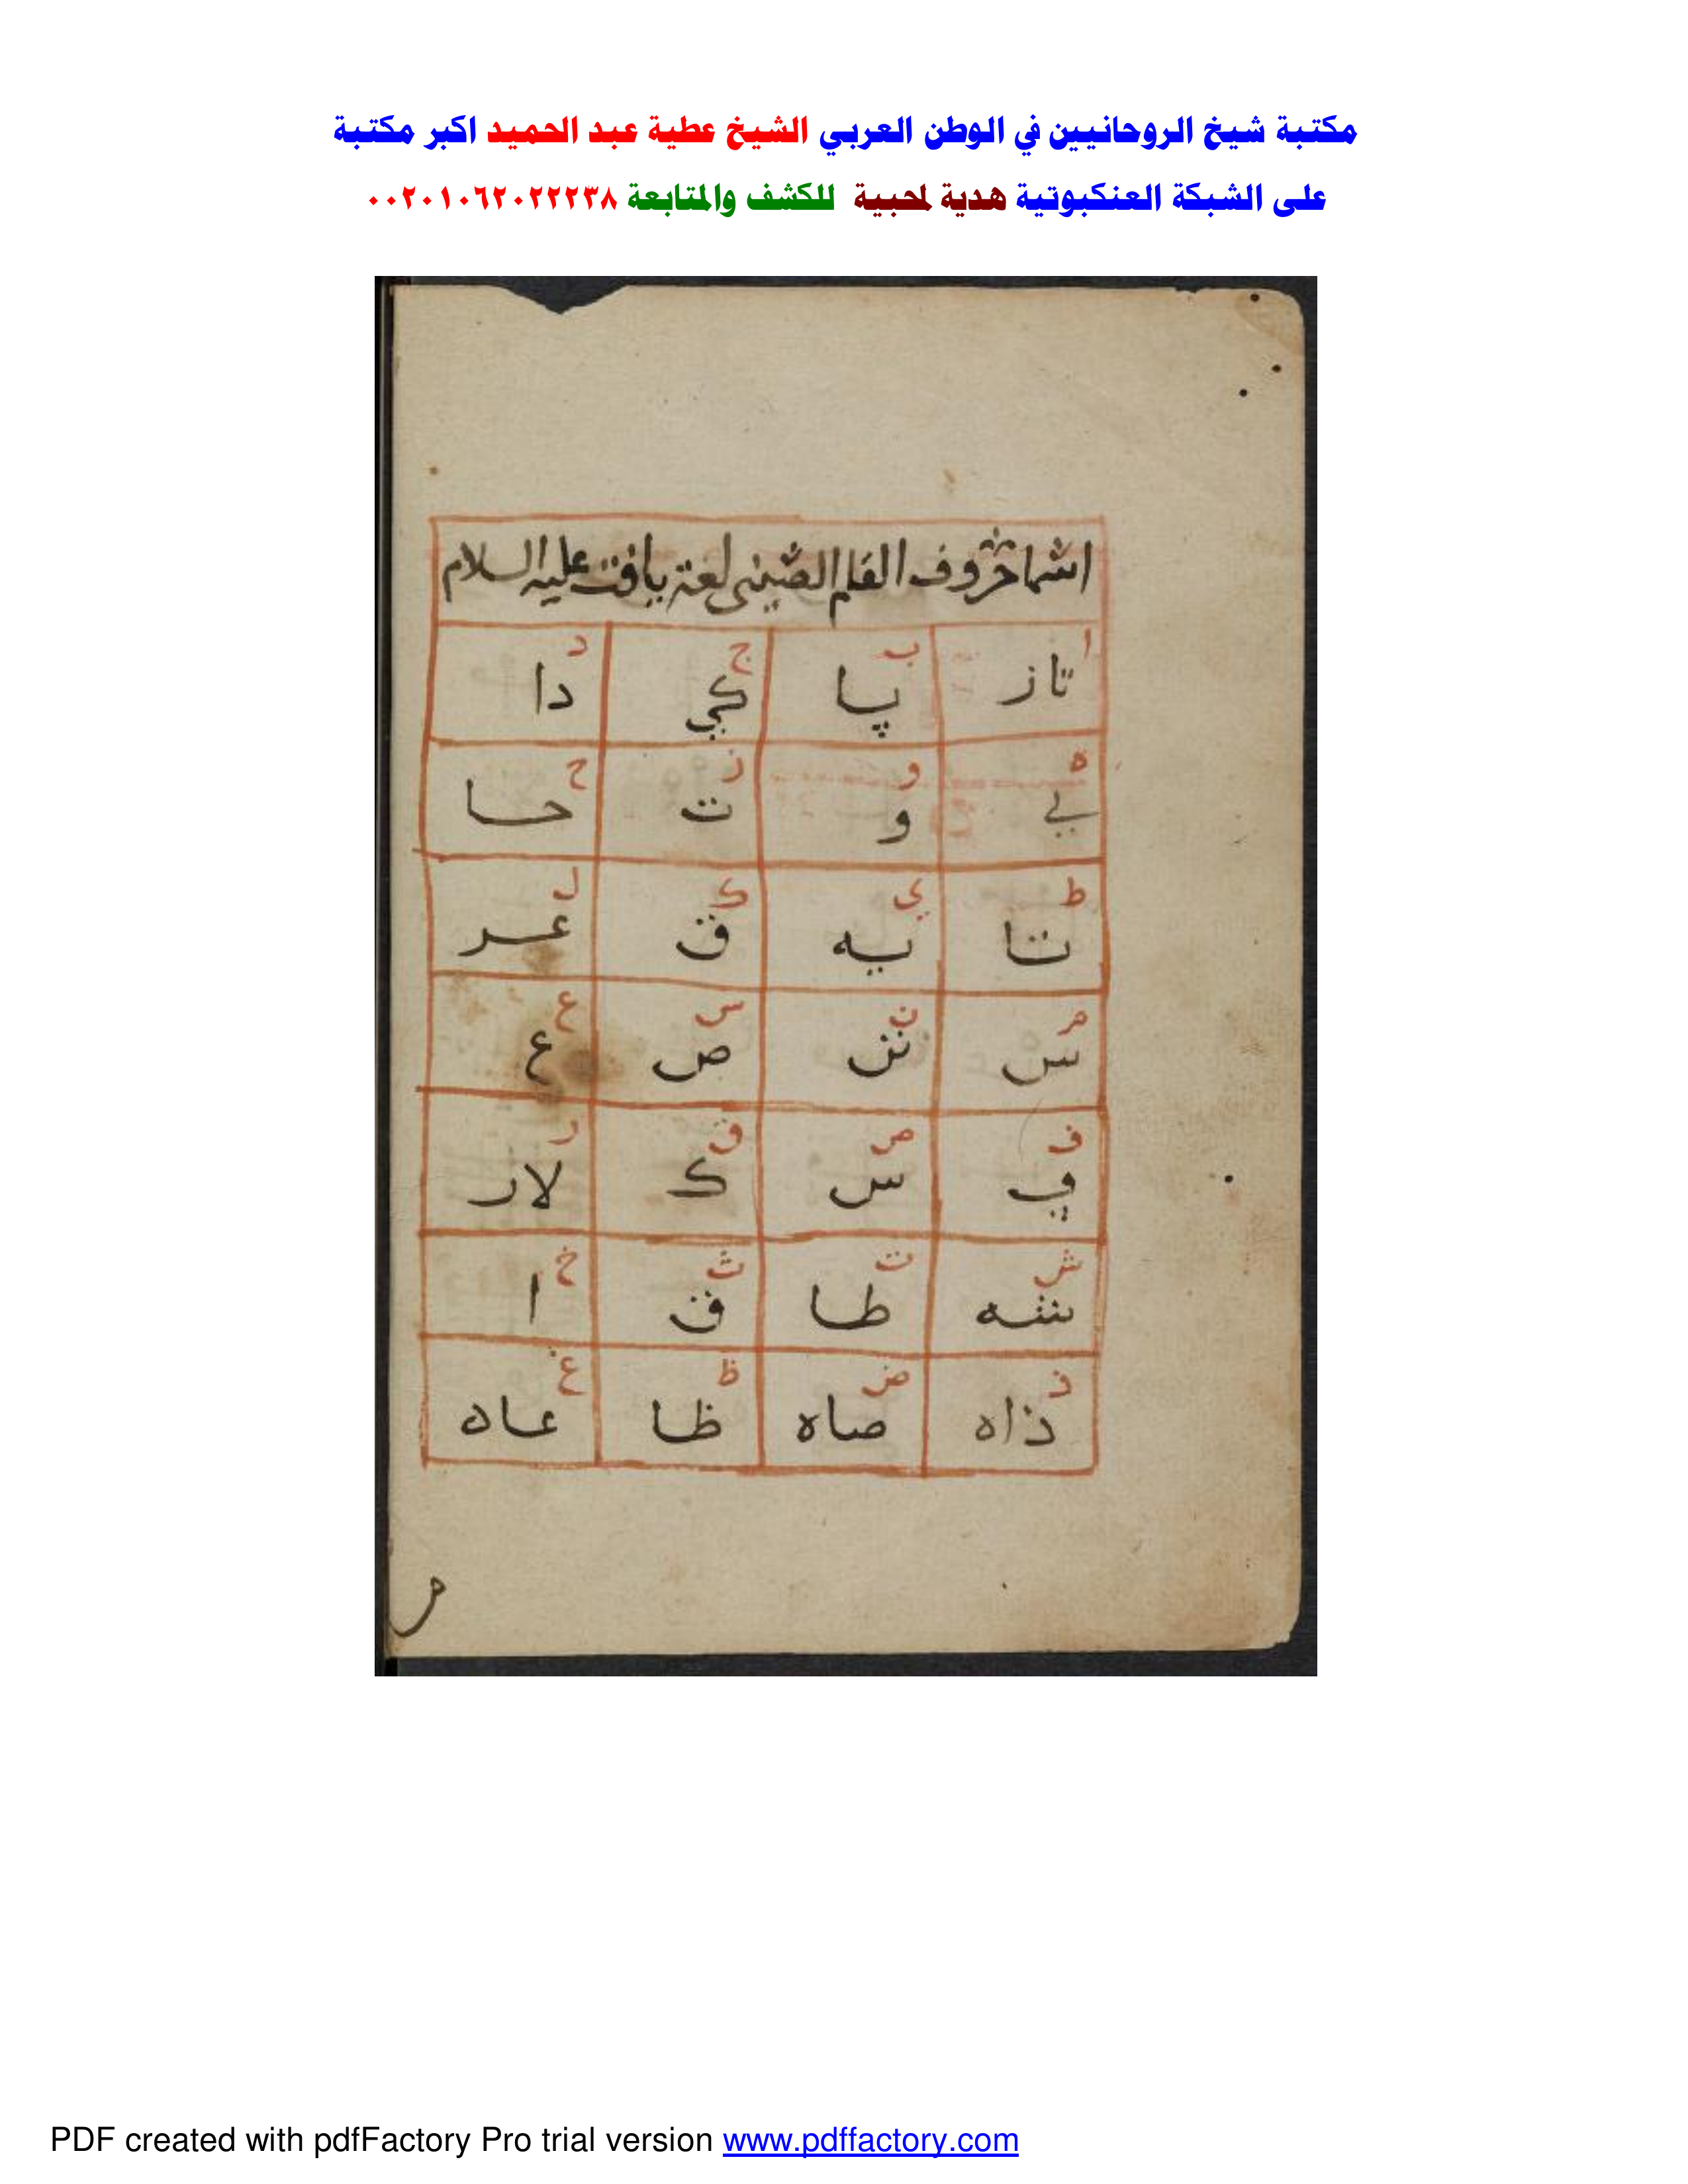 مكتبة شيخ الروحانيين في الوطن العربي الشيخ عطية عبد الحميد اكبر مكتبة
على الشبكة العنكبوتية هدية لمحبية للكشف والمتابعة ٠٠٢٠١٠٦٢٠٢٢٢٣٨
اسما حروف القلم الصينى لغة يافت عليه السلام
ا ب ج د
تاز پا كي دا
ه و ز ح
لي و ت حا
ط ي ك ل
تا يه ق عر
م ن س ع
س نن ص ع
ف ص ق ر
في س ك لار
ش ت ث خ
شه طا ق ا
ذ ض ظ غ
ذاه صاه ظا عاه
PDF created with pdfFactory Pro trial version www.pdffactory.com